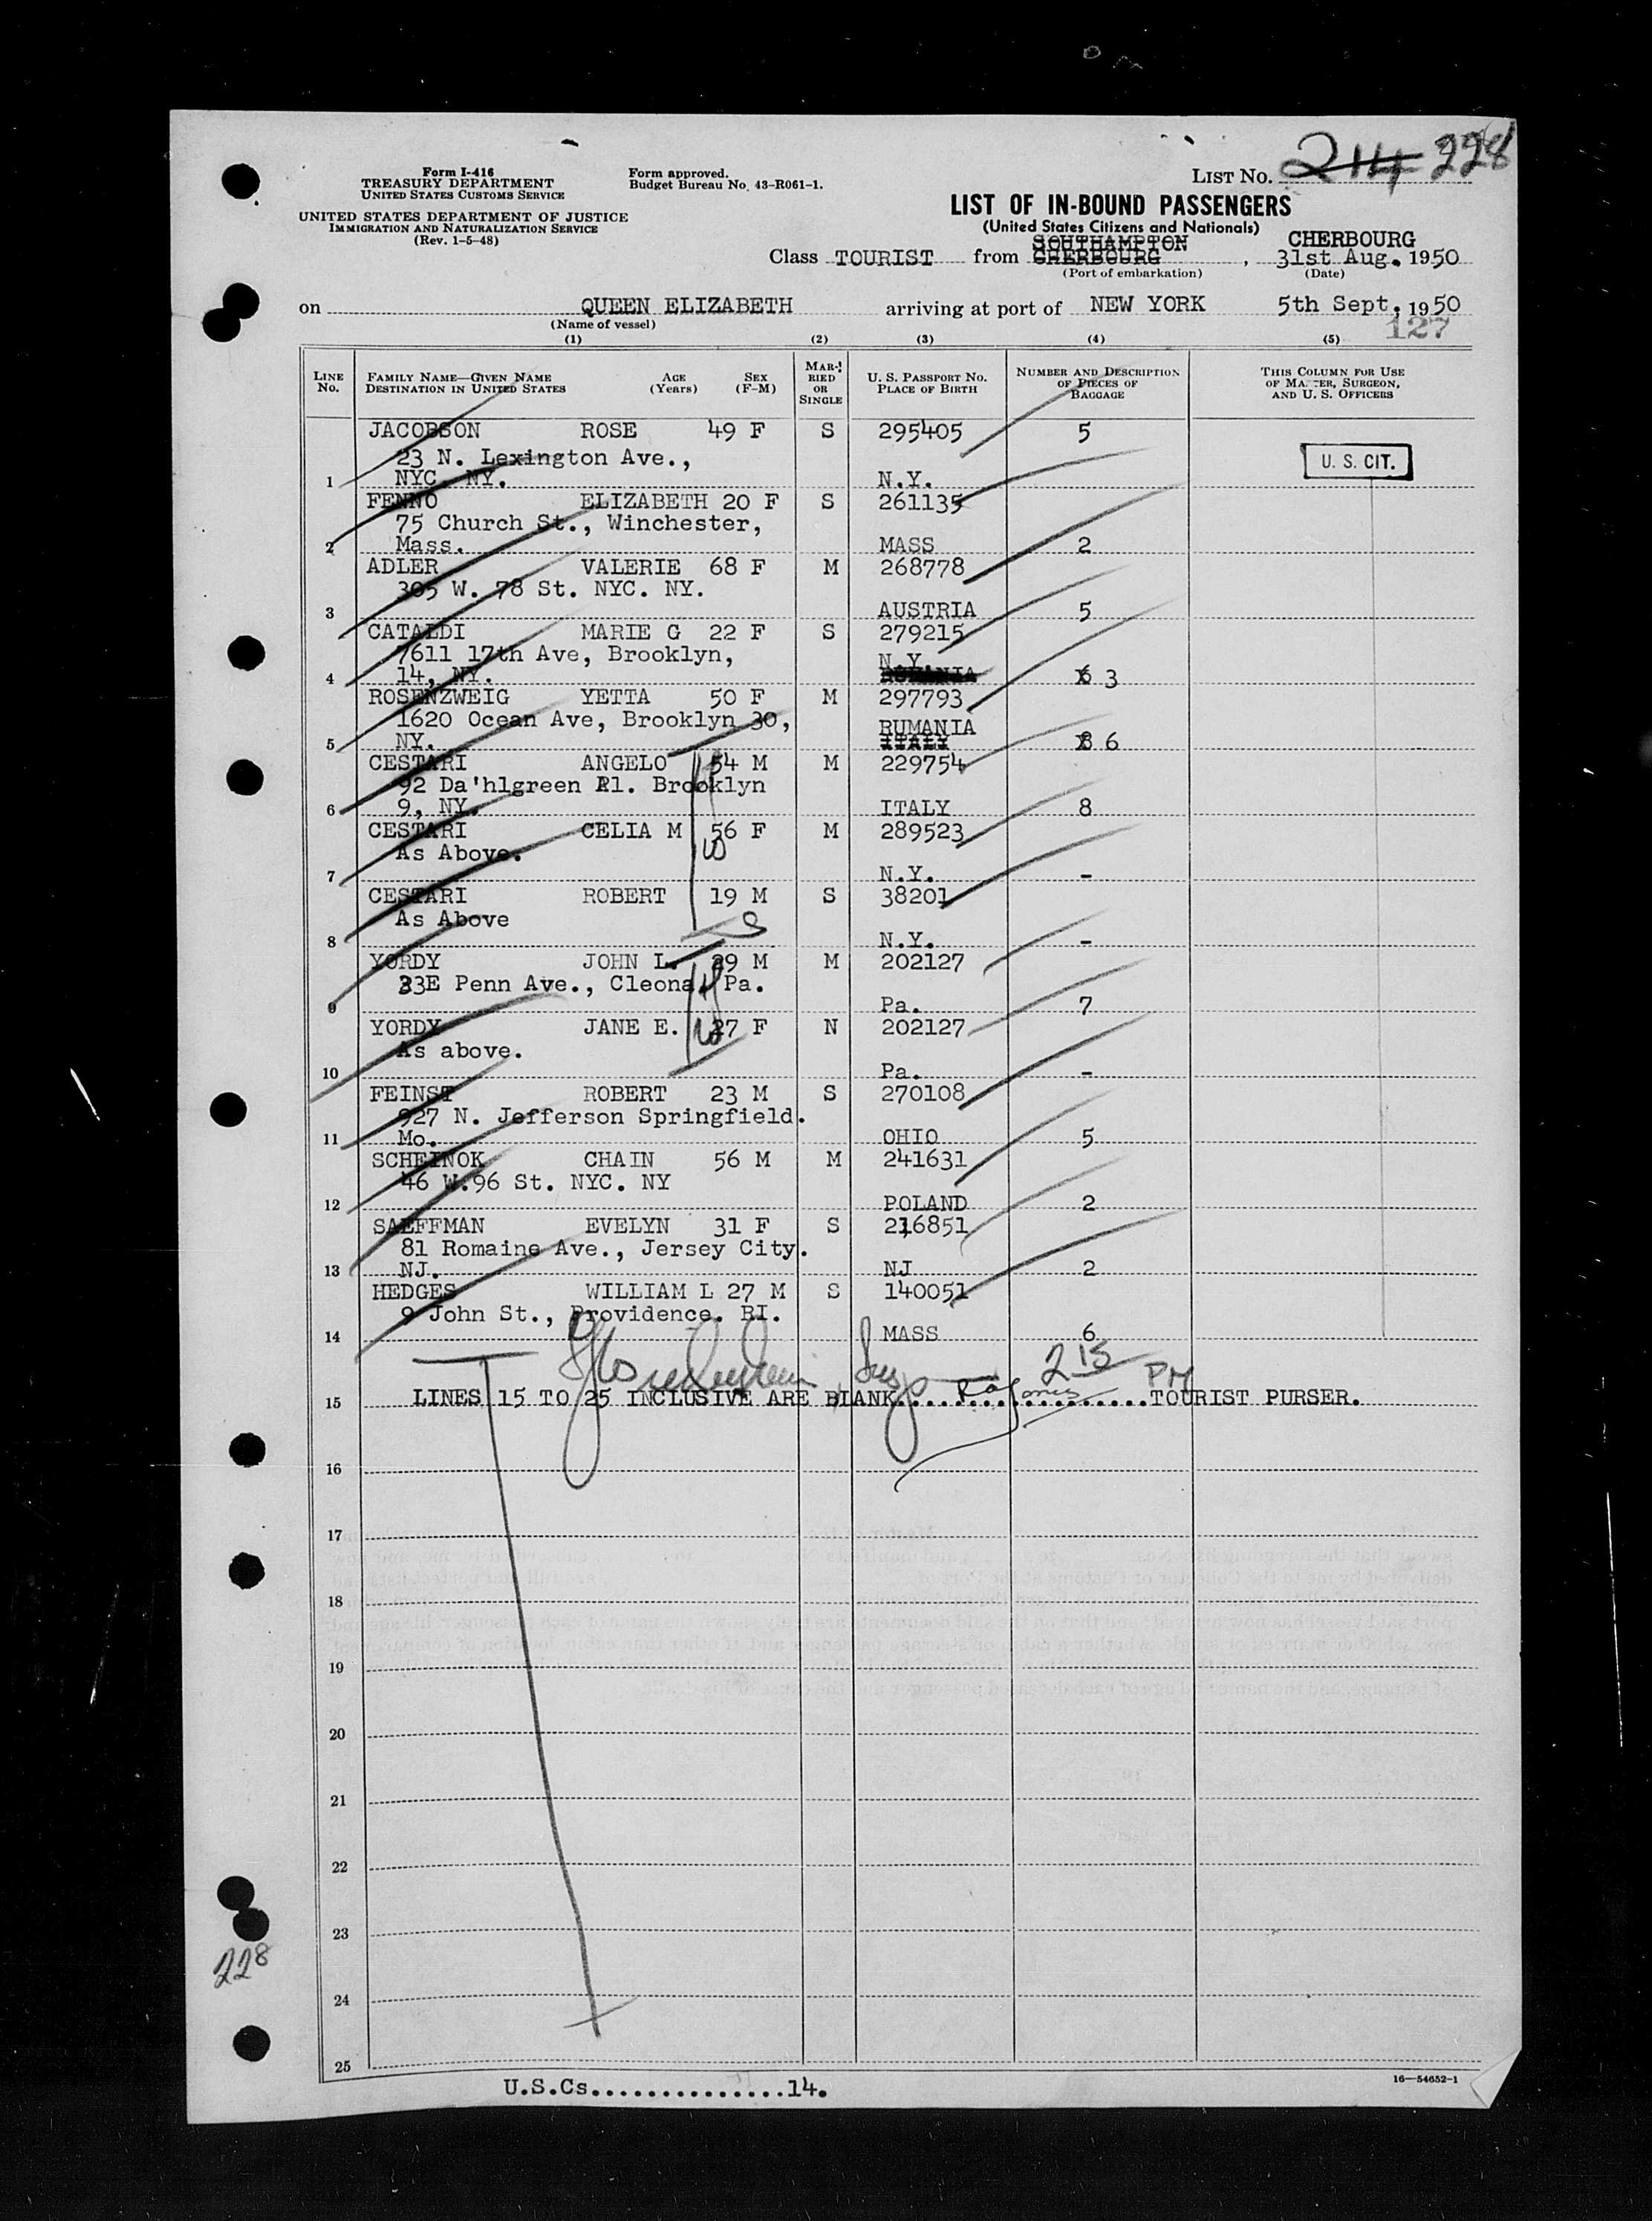 214 228
Form I-416
TREASURY DEPARTMENT
UNITED STATES CUSTOMS SERVICE
Form approved.
Budget Bureau No. 43-R061-1.
LIST NO.
UNITED STATES DEPARTMENT OF JUSTICE
IMMIGRATION AND NATURALIZATION SERVICE
(Rev. 1-5-48)
LIST OF IN-BOUND PASSENGERS
(United States Citizens and Nationals)
SOUTHAMPTON CHERBOURG
Class TOURIST from CHERBOURG , 31st Aug. 1950
(Port of embarkation) (Date)
on QUEEN ELIZABETH arriving at port of NEW YORK 5th Sept, 1950
(Name of vessel) 127
(1) (2) (3) (4) (5)
LINE No. FAMILY NAME—GIVEN NAME DESTINATION IN UNITED STATES AGE (Years) SEX (F-M) MARRIED OR SINGLE U. S. PASSPORT NO. PLACE OF BIRTH NUMBER AND DESCRIPTION OF PIECES OF BAGGAGE THIS COLUMN FOR USE OF MASTER, SURGEON, AND U. S. OFFICERS
JACOBSON ROSE 49 F S 295405 5
23 N. Lexington Ave., U. S. CIT.
1 NYC. NY. N.Y.
FENNO ELIZABETH 20 F S 261135
75 Church St., Winchester,
2 Mass. MASS 2
ADLER VALERIE 68 F M 268778
305 W. 78 St. NYC. NY.
3 AUSTRIA 5
CATALDI MARIE G 22 F S 279215
7611 17th Ave, Brooklyn, N.Y.
4 14, NY. 3
ROSENZWEIG YETTA 50 F M 297793
1620 Ocean Ave, Brooklyn 30, RUMANIA
5 NY. ITALY 6
CESTARI ANGELO 54 M M 229754
92 Da'hlgreen Pl. Brooklyn
6 9, NY. ITALY 8
CESTARI CELIA M 56 F M 289523
As Above.
7 N.Y. -
CESTARI ROBERT 19 M S 38201
As Above
8 N.Y. -
YORDY JOHN L. 29 M M 202127
33E Penn Ave., Cleona, Pa.
9 Pa. 7
YORDY JANE E. 27 F N 202127
As above.
10 Pa. -
FEINST ROBERT 23 M S 270108
927 N. Jefferson Springfield.
11 Mo. OHIO 5
SCHEINOK CHAIN 56 M M 241631
46 W.96 St. NYC. NY
12 POLAND 2
SAEFFMAN EVELYN 31 F S 216851
81 Romaine Ave., Jersey City.
13 NJ. NJ 2
HEDGES WILLIAM L 27 M S 140051
9 John St., Providence. RI.
14 MASS 6
2 15 PM
15 LINES 15 TO 25 INCLUSIVE ARE BLANK..................TOURIST PURSER.
16
17
18
19
20
21
22
23
228
24
25
U.S.Cs...............14.
16—54652-1